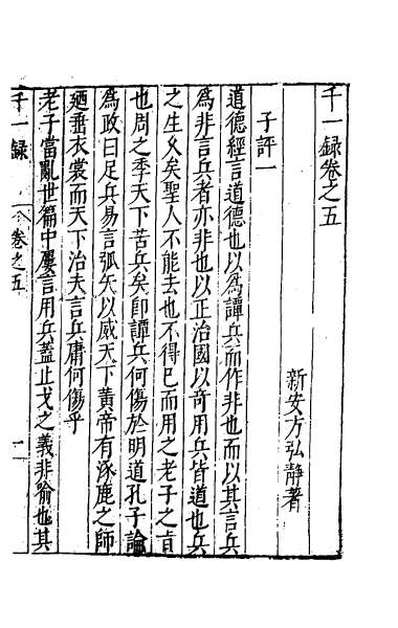 千一録卷之五
新安方弘靜著
子評一
道德經言道德也以為譚兵而作非也而以其言兵
為非言兵者亦非也以正治國以奇用兵皆道也兵
之生久矣聖人不能去也不得已而用之老子之旨
也周之季天下苦兵矣卽譚兵何傷於明道孔子論
為政曰足兵易言弧矢以威天下黃帝有涿鹿之師
廼垂衣裳而天下治夫言兵庸何傷乎
老子當亂世篇中屢言用兵蓋止戈之義非喻也其
千一録
卷之五
一